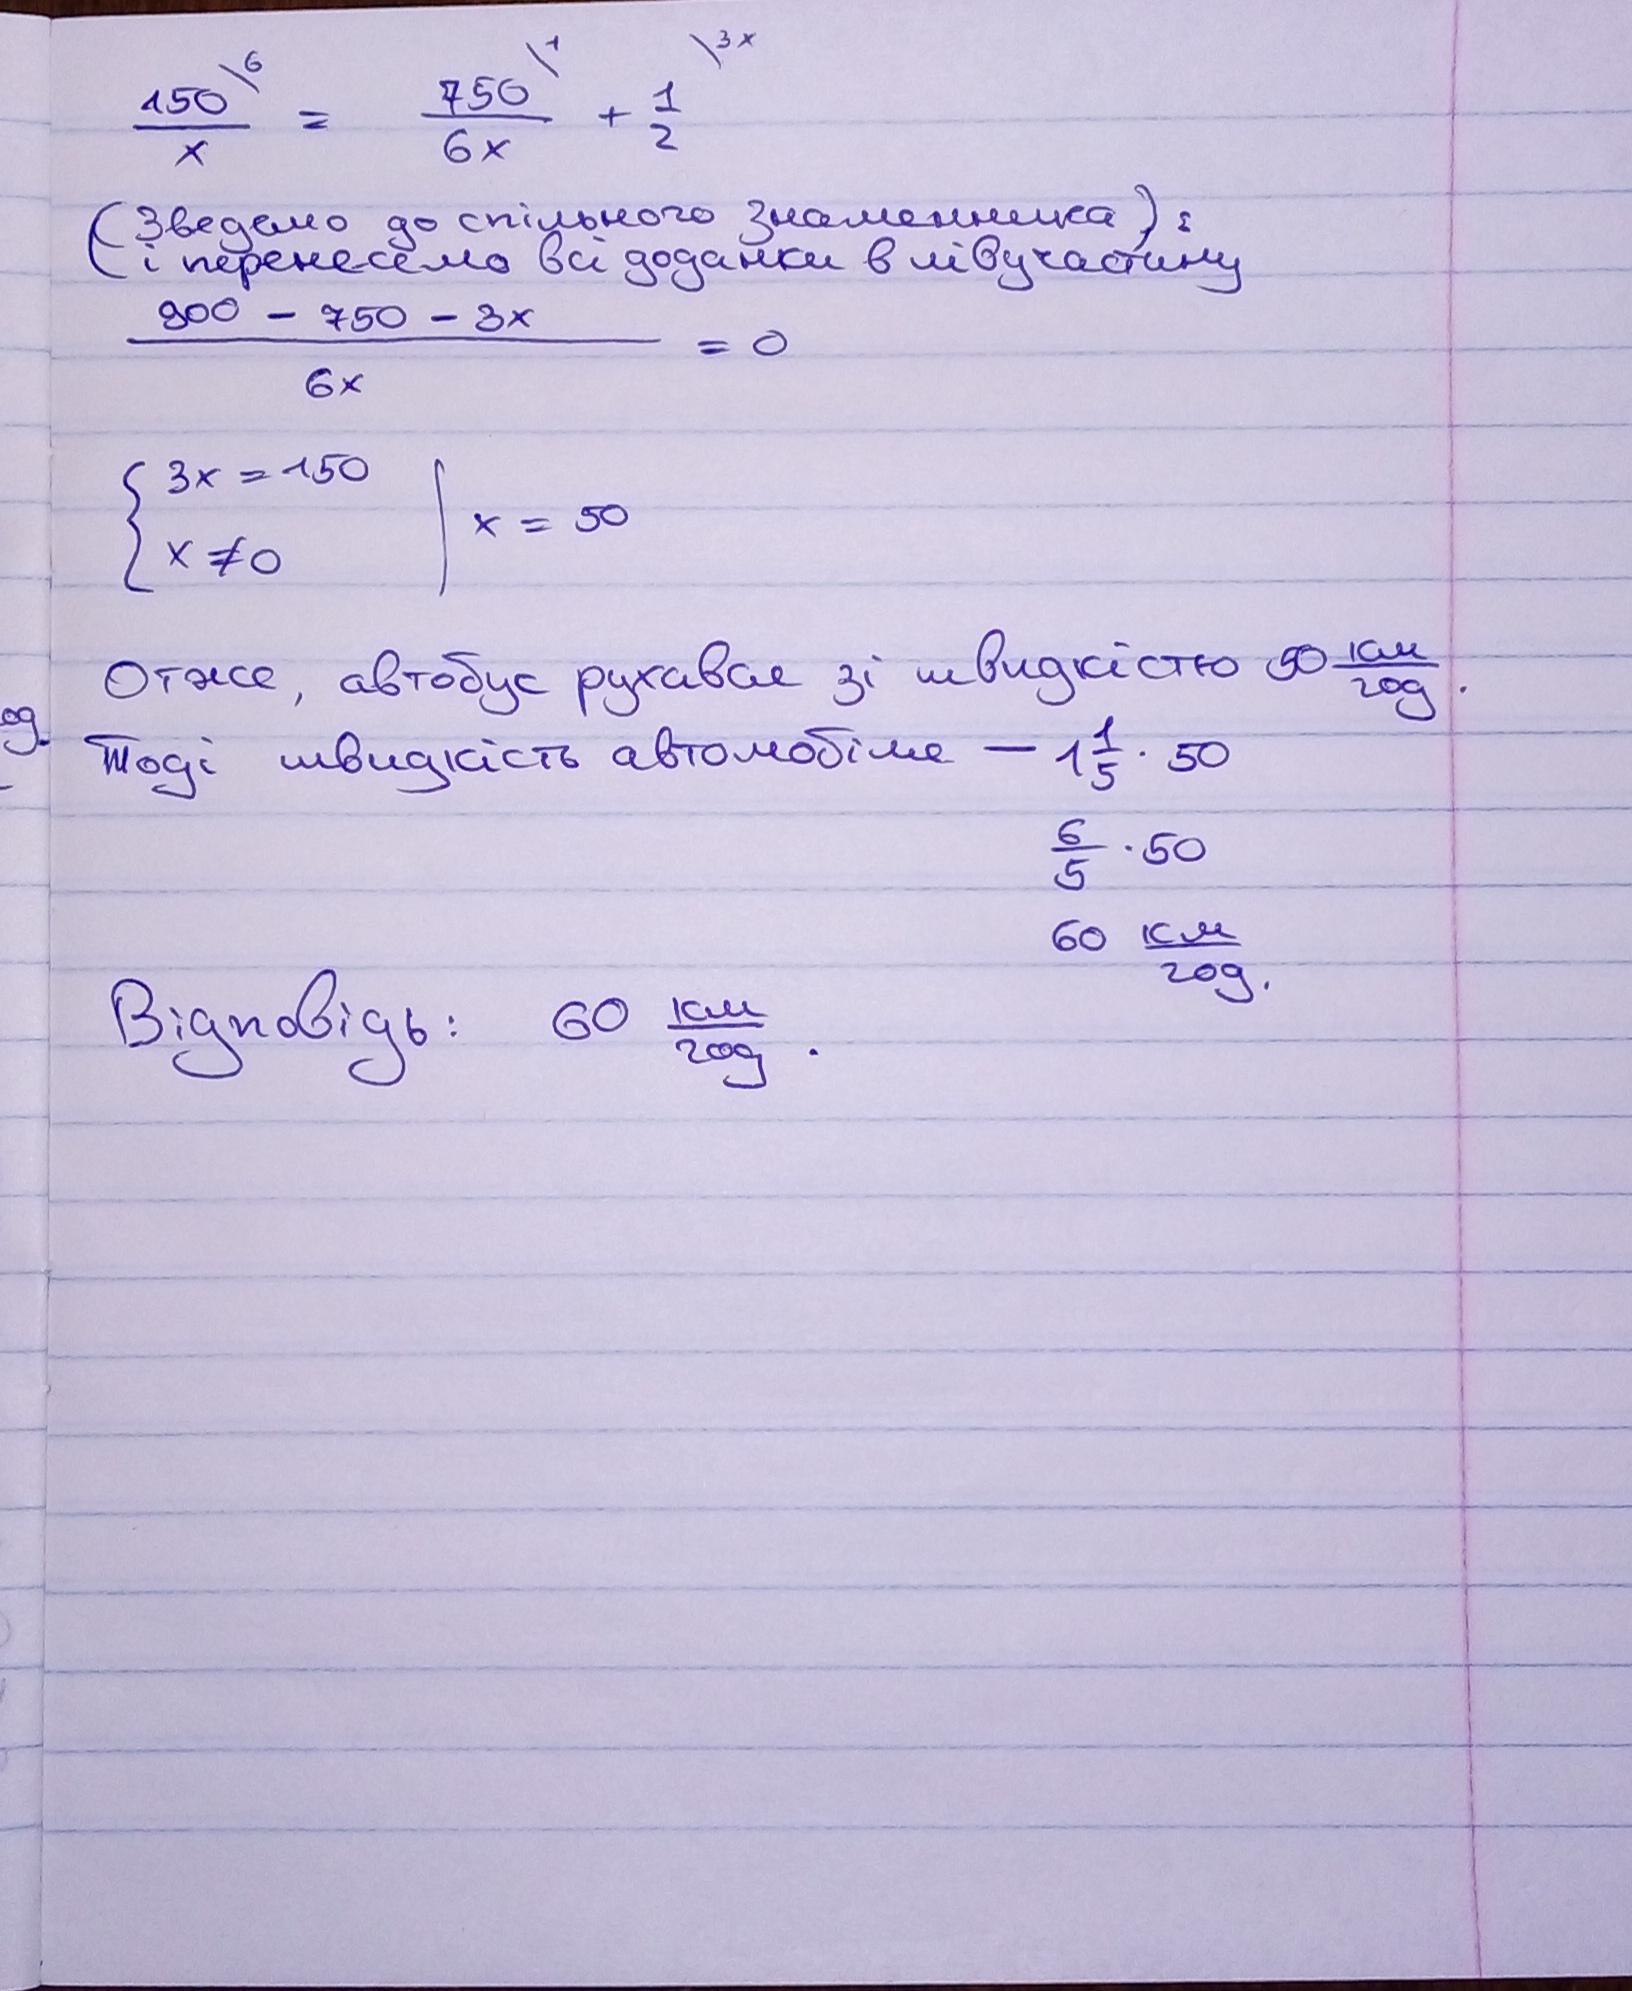 150\6 / x = 750\1 / 6x + 1/2 \3x
(Зведемо до спільного знаменника);
(і перенесемо всі доданки в ліву частину
900 - 750 - 3x / 6x = 0
{ 3x = 150 | x = 50
x ≠ 0
Отже, автобус рухався зі швидкістю 50 км/год.
Тоді швидкість автомобіля — 1 1/5 · 50
6/5 · 50
60 км/год.
Відповідь: 60 км/год.
од.